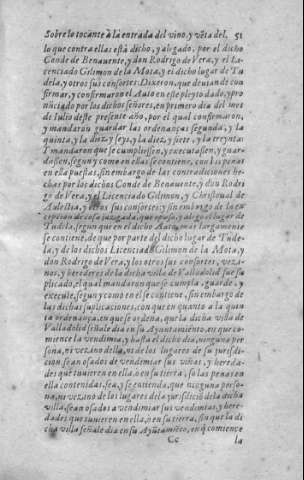 Sobre lo tocante à la entrada del vino, y vẽta del. 51
lo que contra ellas està dicho, y alegado, por el dicho
Conde de Benauente, y don Rodrigo de Vera, y el Li-
cenciado Gilimon de la Mota, y el dicho lugar de Tu
dela, y otros sus consortes. Dixeron, que deuian de con
firmar, y confirmaron el Auto en este pleyto dado, y pro
nũciado por los dichos señores, en primero dia del mes
de Iulio deste presente año, por el qual confirmaron,
y mandaron guardar las ordenanças segunda, y la
quinta, y la diez y seys, y la diez y siete, y la treynta:
Y mandaron que se cumpliessen, y executassen, y guar-
dassen, segun y como en ellas se contiene, con las penas
en ella puestas, sin embargo de las contradiciones he-
chas por los dichos Conde de Benauente, y don Rodri
go de Vera, y el Licenciado Gilimon, y Christoual de
y otros sus consortes: y sin embargo de la ex
cepcion de cosa juzgada, que opuso, y alegò el lugar de
Tudela, segun que en el dicho Auto mas largamente
se contiene, de que por parte del dicho lugar de Tude-
la, y de los dichos Licenciado Gilimon de la Mota, y
don Rodrigo de Vera, y los otros sus consortes, vezi-
nos, y herederos de la dicha villa de Valladolid fue su
plicado, el qual mandaron que se cumpla, guarde, y
execute, segun y como en el se contiene, sin embargo de
las dichas suplicaciones, con que en quanto a la quin
ta ordenança, en que se ordena, que la dicha villa de
Valladolid señale dia en su Ayuntamiẽto, en que co-
mience la vendimia, y hasta el dicho dia, ninguna per
sona, ni vezino della, ni de los lugares de su jurisdi-
cion, sean osados de vendimiar sus viñas, y hereda-
des que tuuieren en ella, ò en su tierra, so las penas en
ella contenidas, sea, y se entienda, que ninguna perso-
na, ni vezino de los lugares de la jurisdicciõ de la dicha
villa, sean osados a vendimiar sus vendimias, y here-
dades que tuuieren en ella, ò en su tierra, sin que la di
cha villa señale dia en su Ayũtamiẽto, en q̃ comience
Cc la